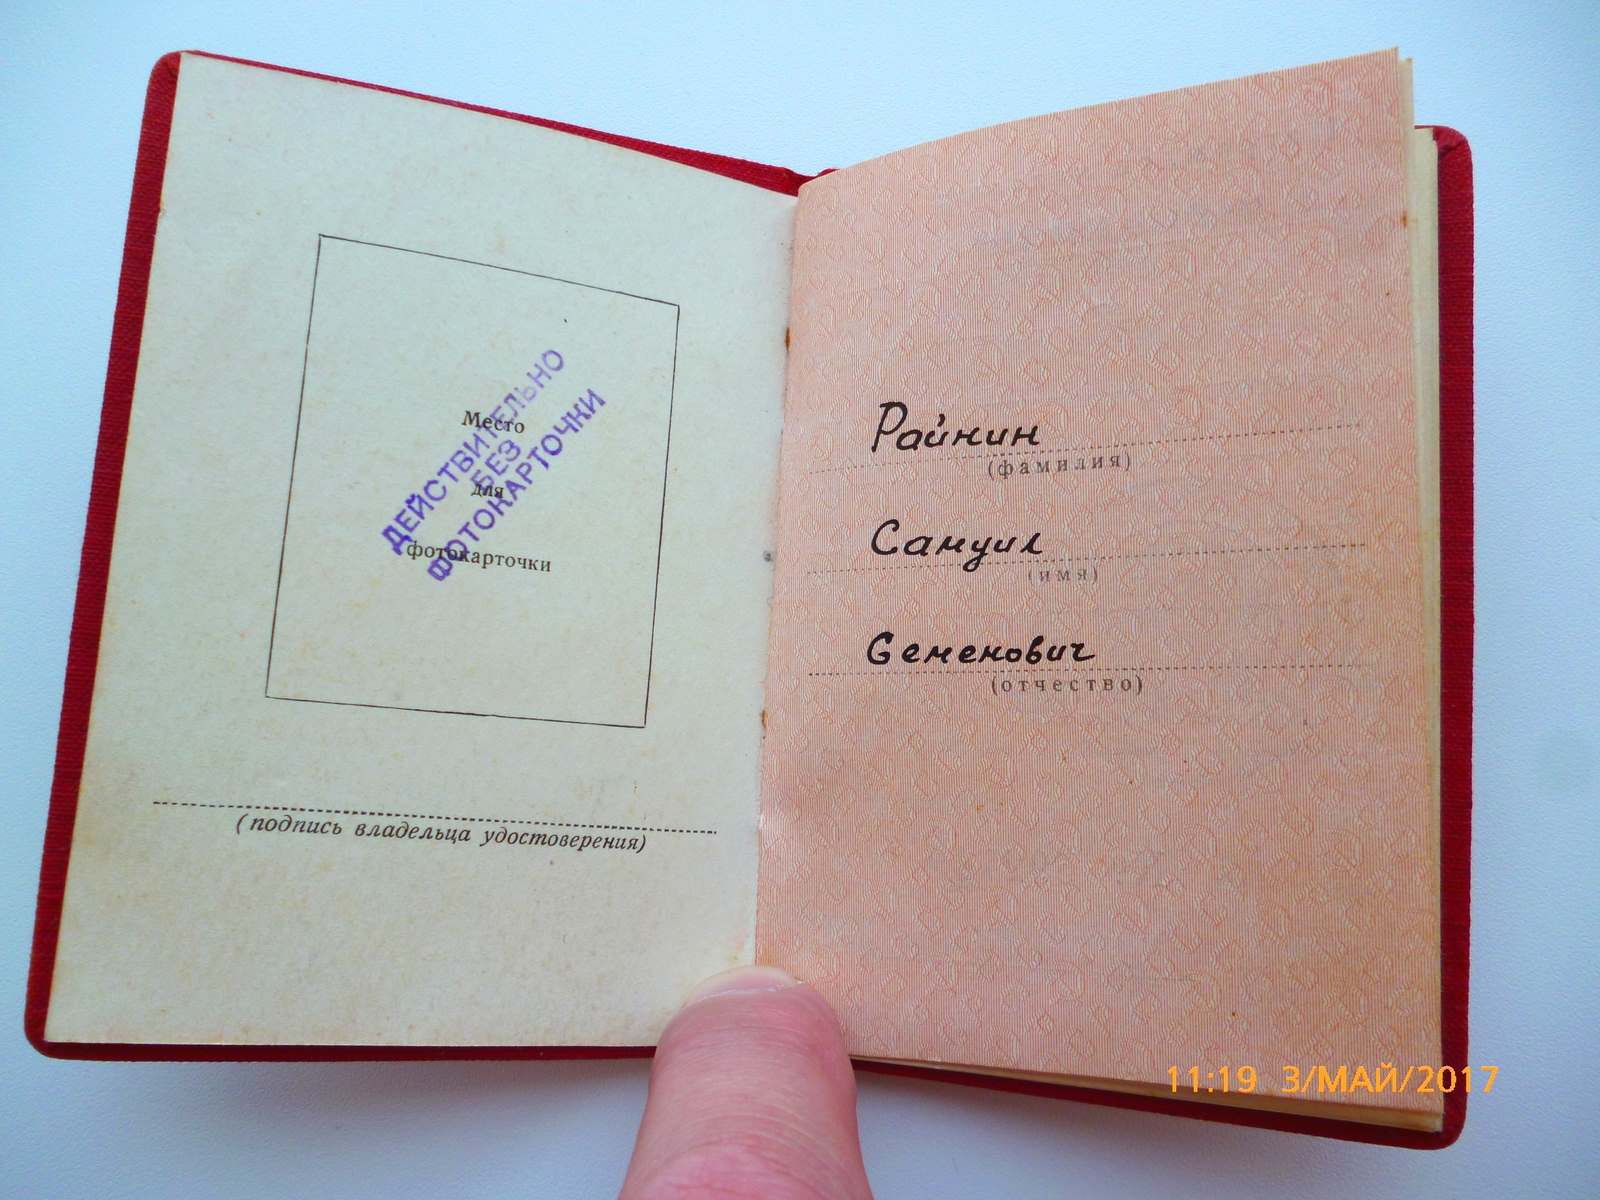 Место
для
фотокарточки
ДЕЙСТВИТЕЛЬНО
БЕЗ
ФОТОКАРТОЧКИ
(подпись владельца удостоверения)
Райнин
(фамилия)
Самуил
(имя)
Семенович
(отчество)
11:19 3/МАЙ/2017